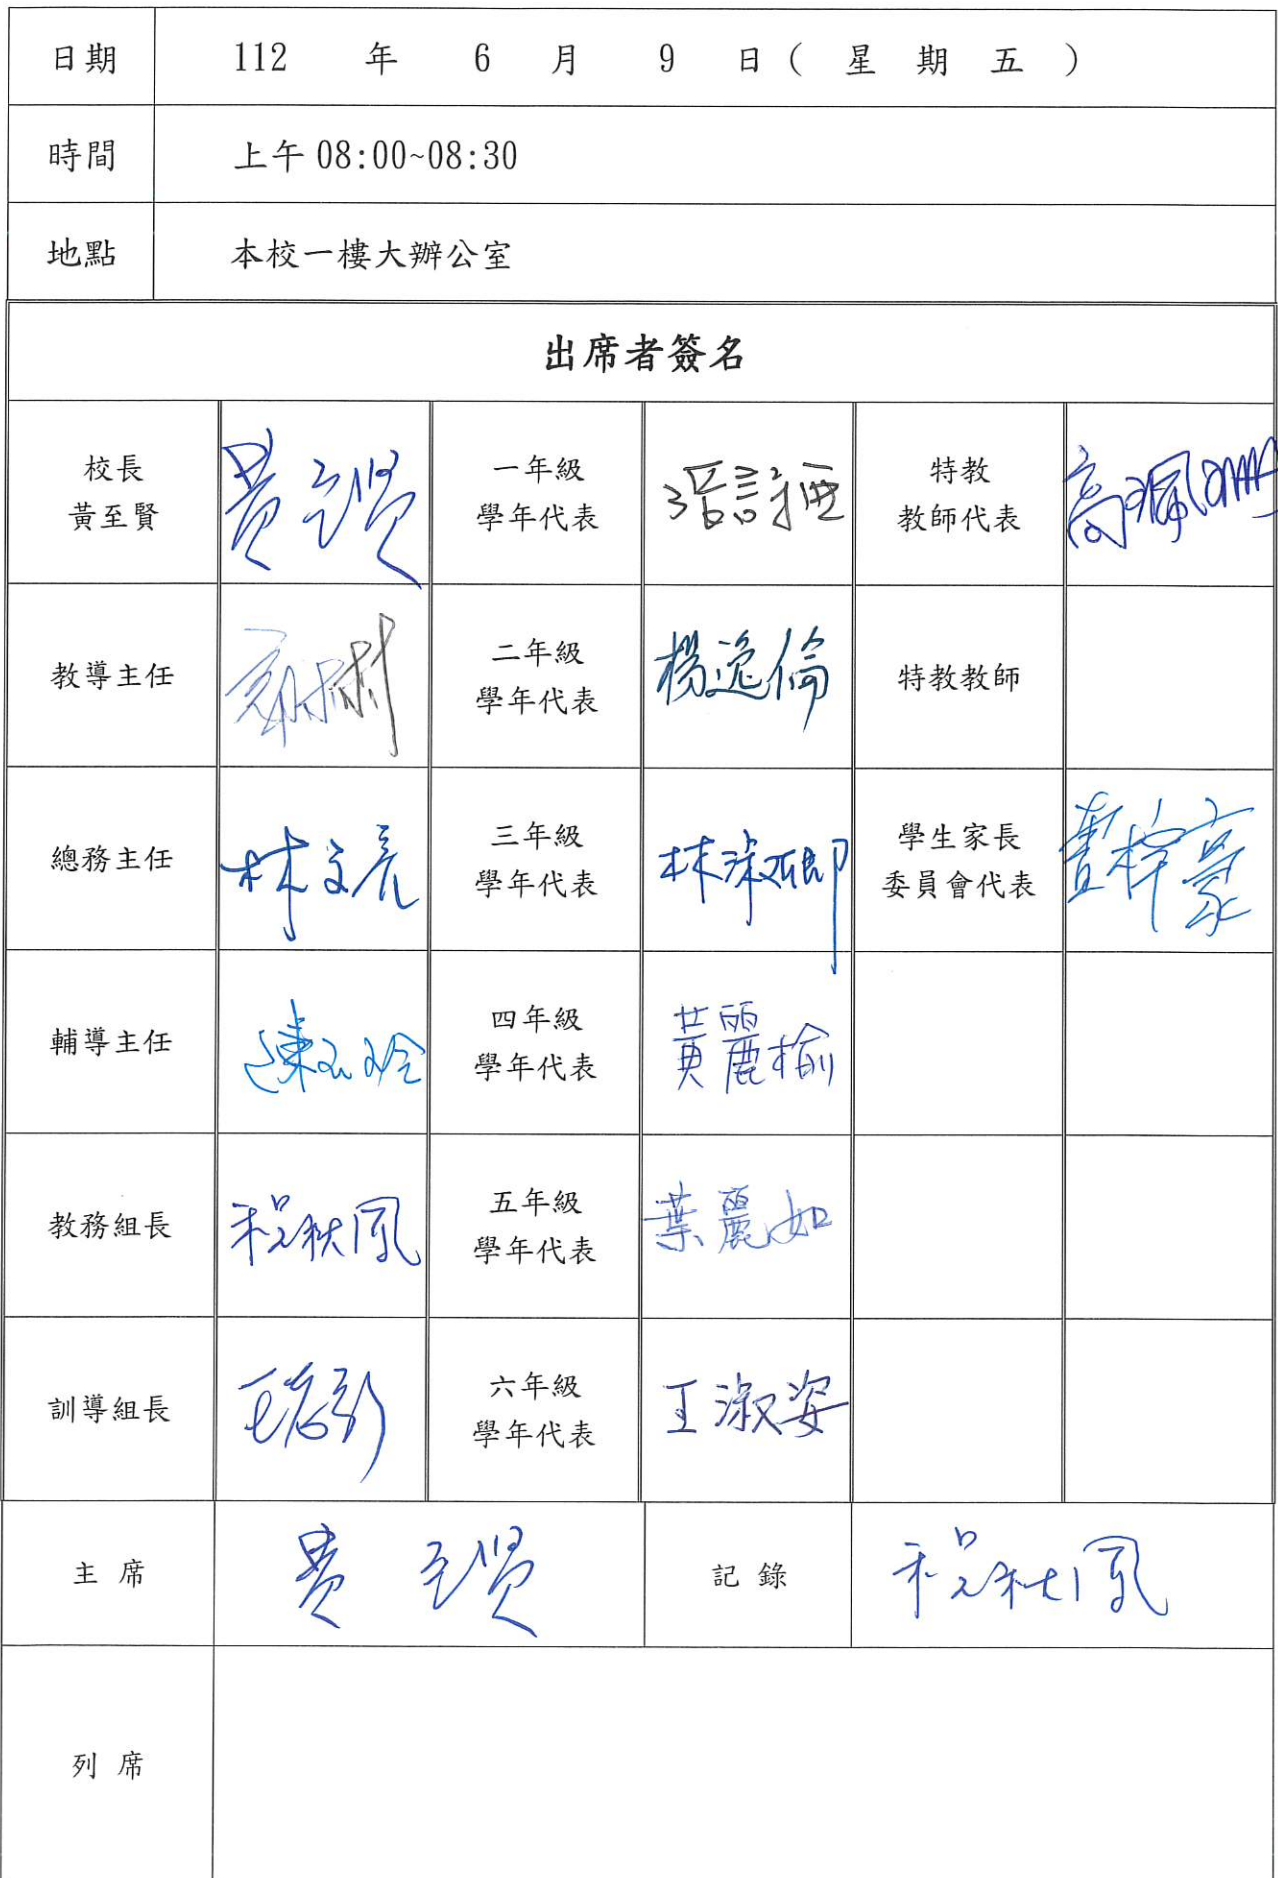 日期 112 年 6 月 9 日(星期五)
時間 上午 08:00~08:30
地點 本校一樓大辦公室
出席者簽名
校長
黃至賢
黃至賢
一年級
學年代表
特教
教師代表
教導主任
二年級
學年代表
楊逸倫
特教教師
總務主任
林文亮
三年級
學年代表
林淑
學生家長
委員會代表
輔導主任
陳玉玲
四年級
學年代表
黃麗榆
教務組長
程秋鳳
五年級
學年代表
葉麗如
訓導組長
王
六年級
學年代表
王淑姿
主席 黃至賢 記錄 程秋鳳
列席